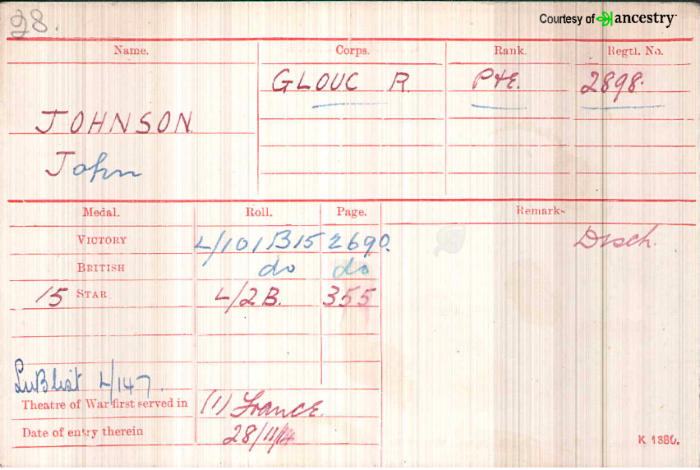 28.
Courtesy of ancestry
Name. Corps. Rank. Regtl. No.
GLOUC R. Pte. 2898.
JOHNSON
John
Medal. Roll. Page. Remarks
VICTORY L/101B15 2690. Disch.
BRITISH do do
15 STAR L/2B. 355
L/147.
Theatre of War first served in (1) France.
Date of entry therein 28/11/14
K 1380.